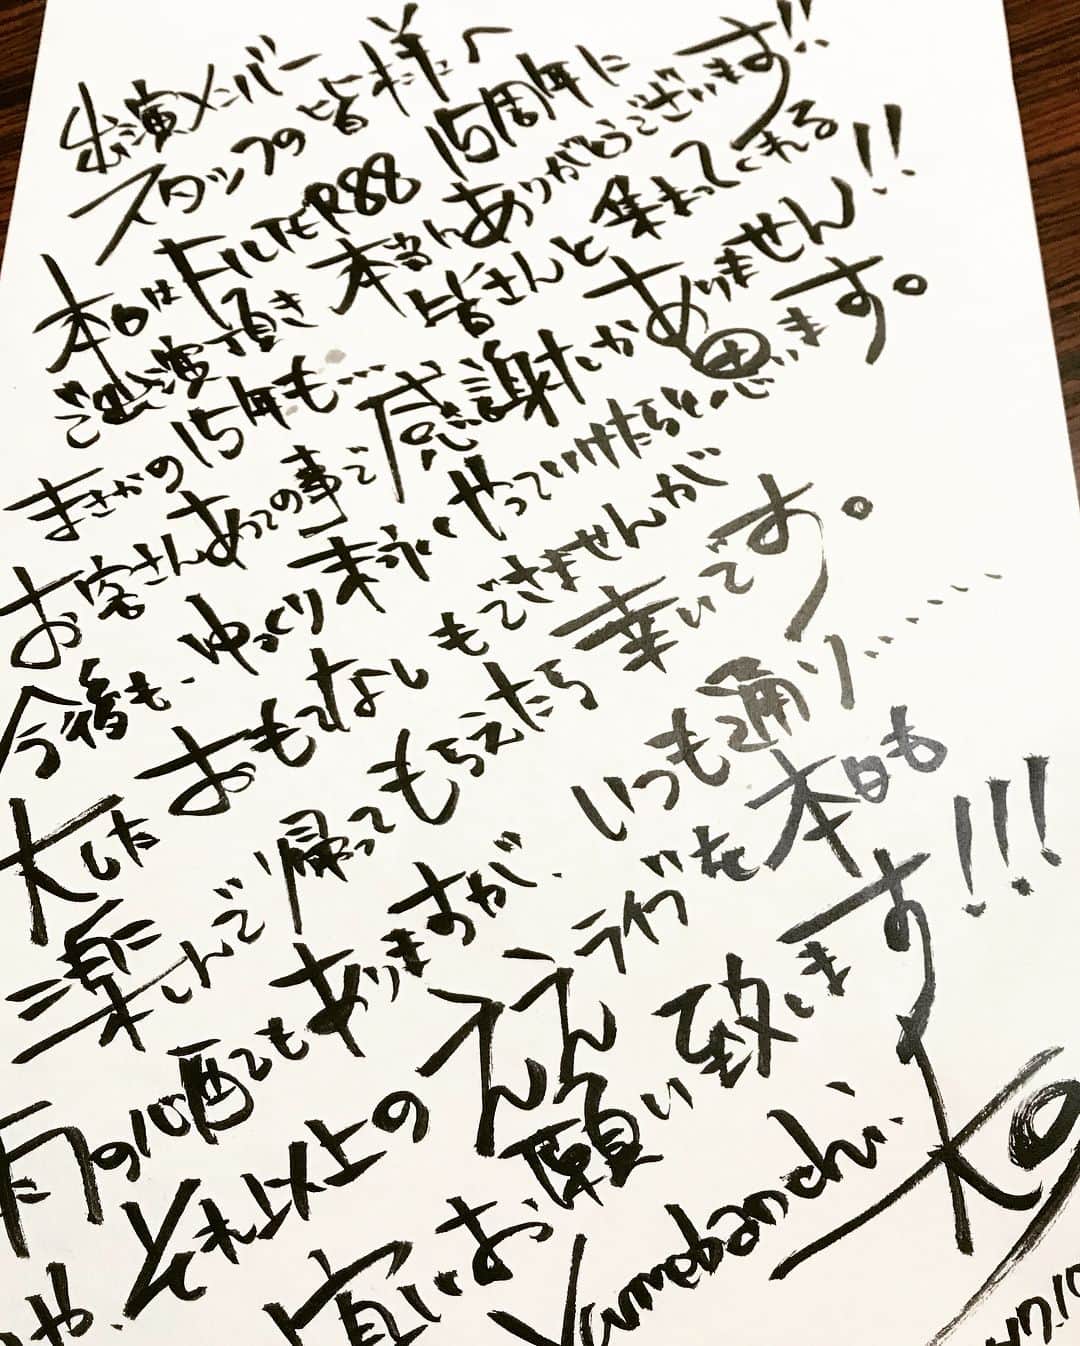 出演メンバー
スタッフの皆様へ
本日はFILTER88 15周年に
ご出演頂き 本当にありがとうございます!!
まさかの15年も… 皆さんと集まってくれる
お客さんあっての事で感謝しかありません!!
今後も、ゆっくり まったり やっていけたらと思います。
大した おもてなしもできませんが
楽しんで帰ってもらえたら幸いです。
雨の心配でもありますが、いつも通り……
や、それ以上のええライブを本日も
宜しくお願い致します!!!
Yamebanchi. Ko